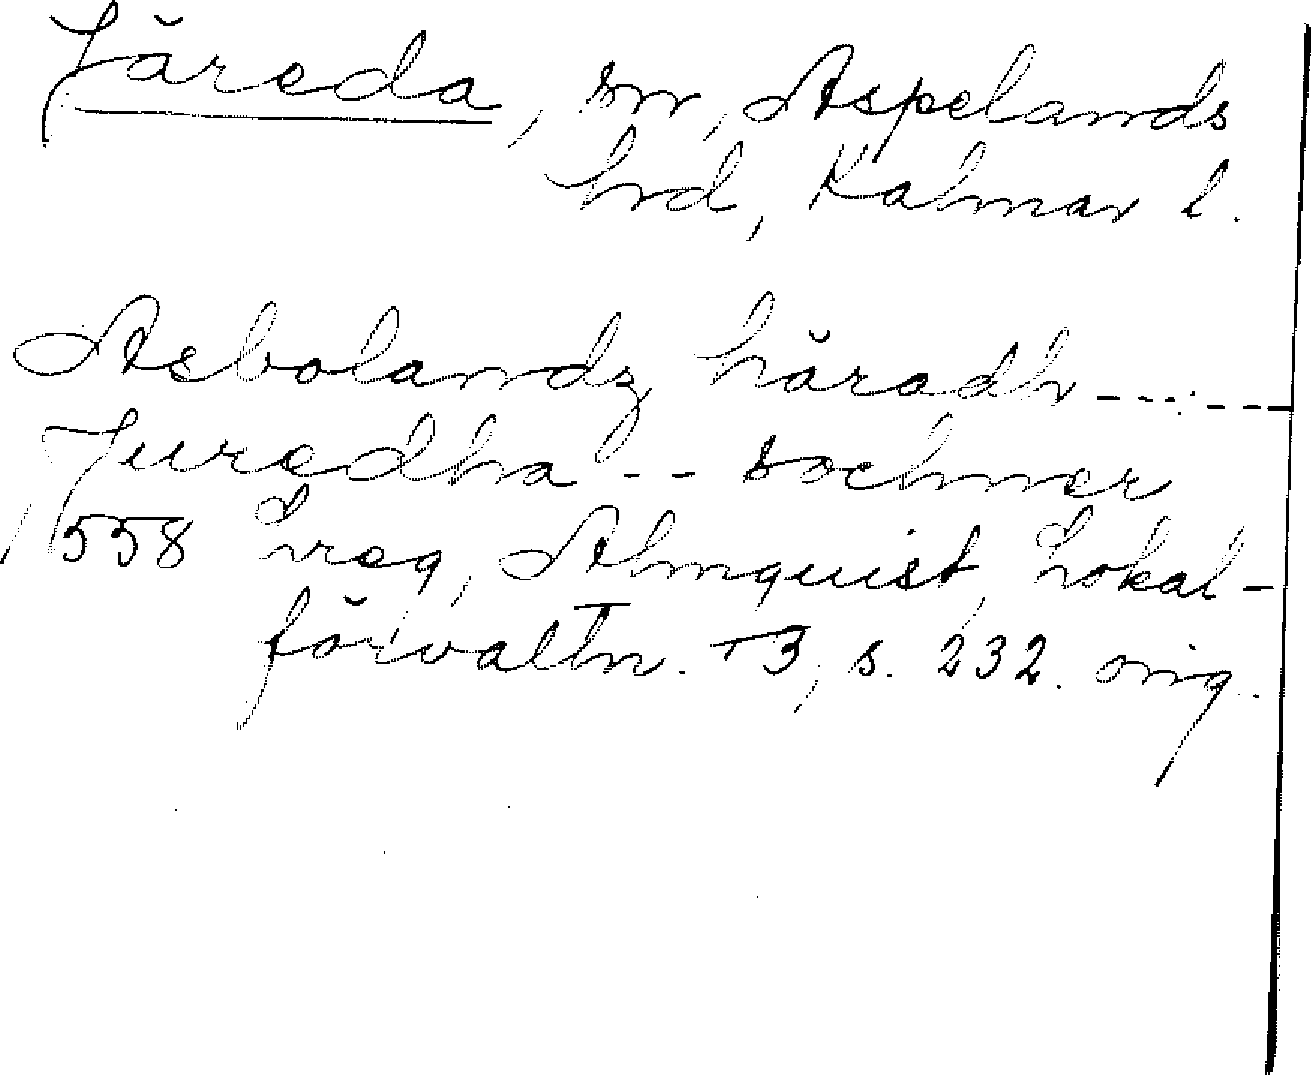 Järeda, sn, Aspelands
hrd, Kalmar l.
Asbolandz häradh ----
Juredha -- sochner
1558 vreg, Almquist, Lokal-
förvaltn. 3, s. 232. orig.